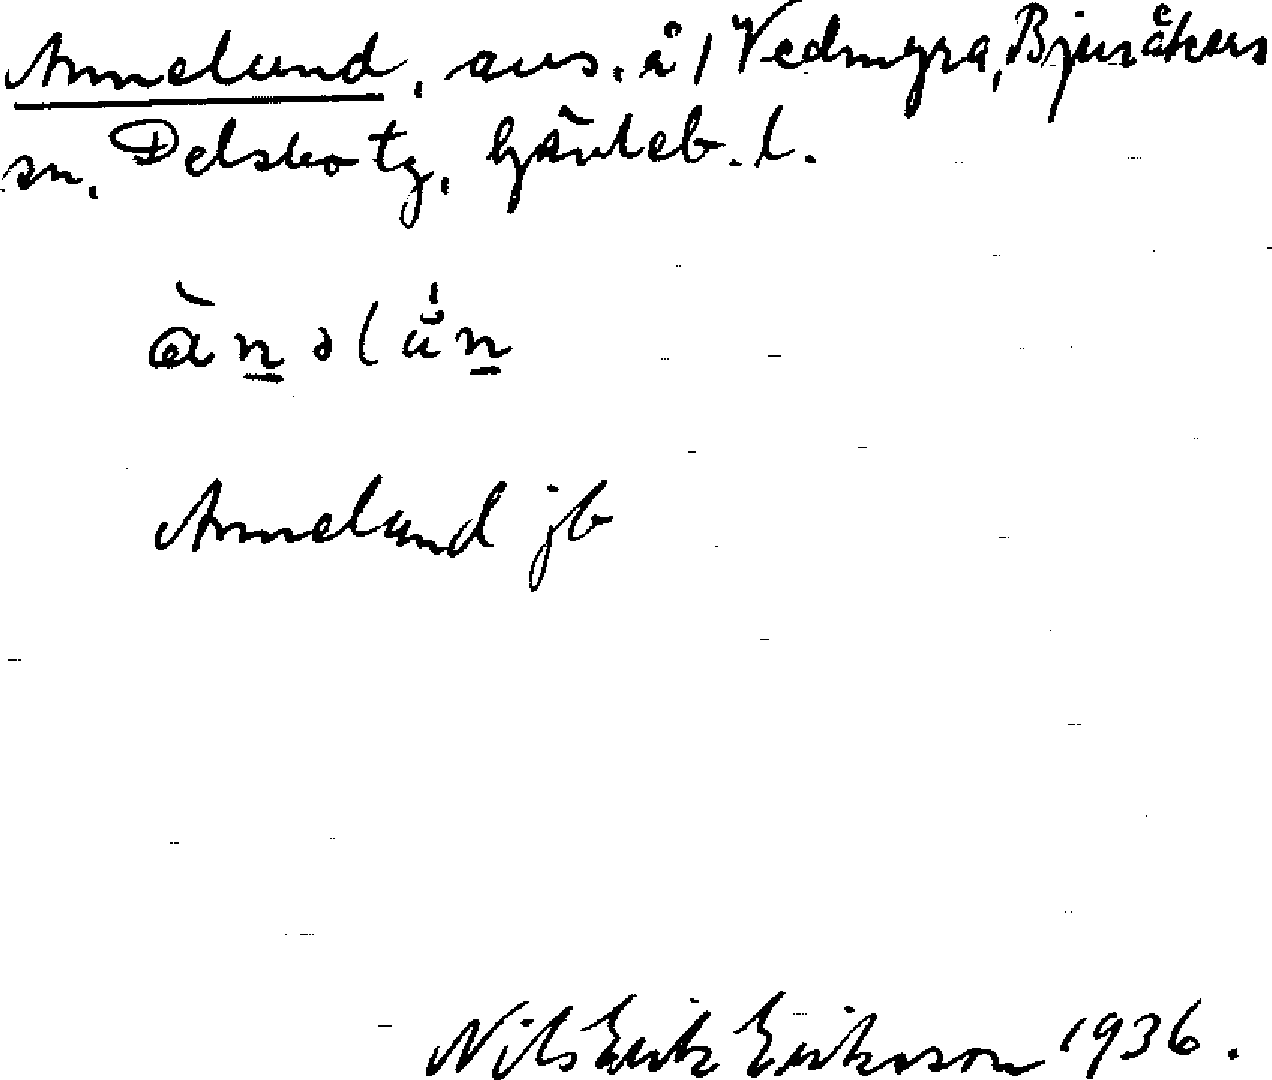 Annelund, avs. å 1 Vedmyra, Bjuråkers
sn. Delsbo tg, Gävleb. l.
Annelund jb
Nils Erik Eriksson 1936.